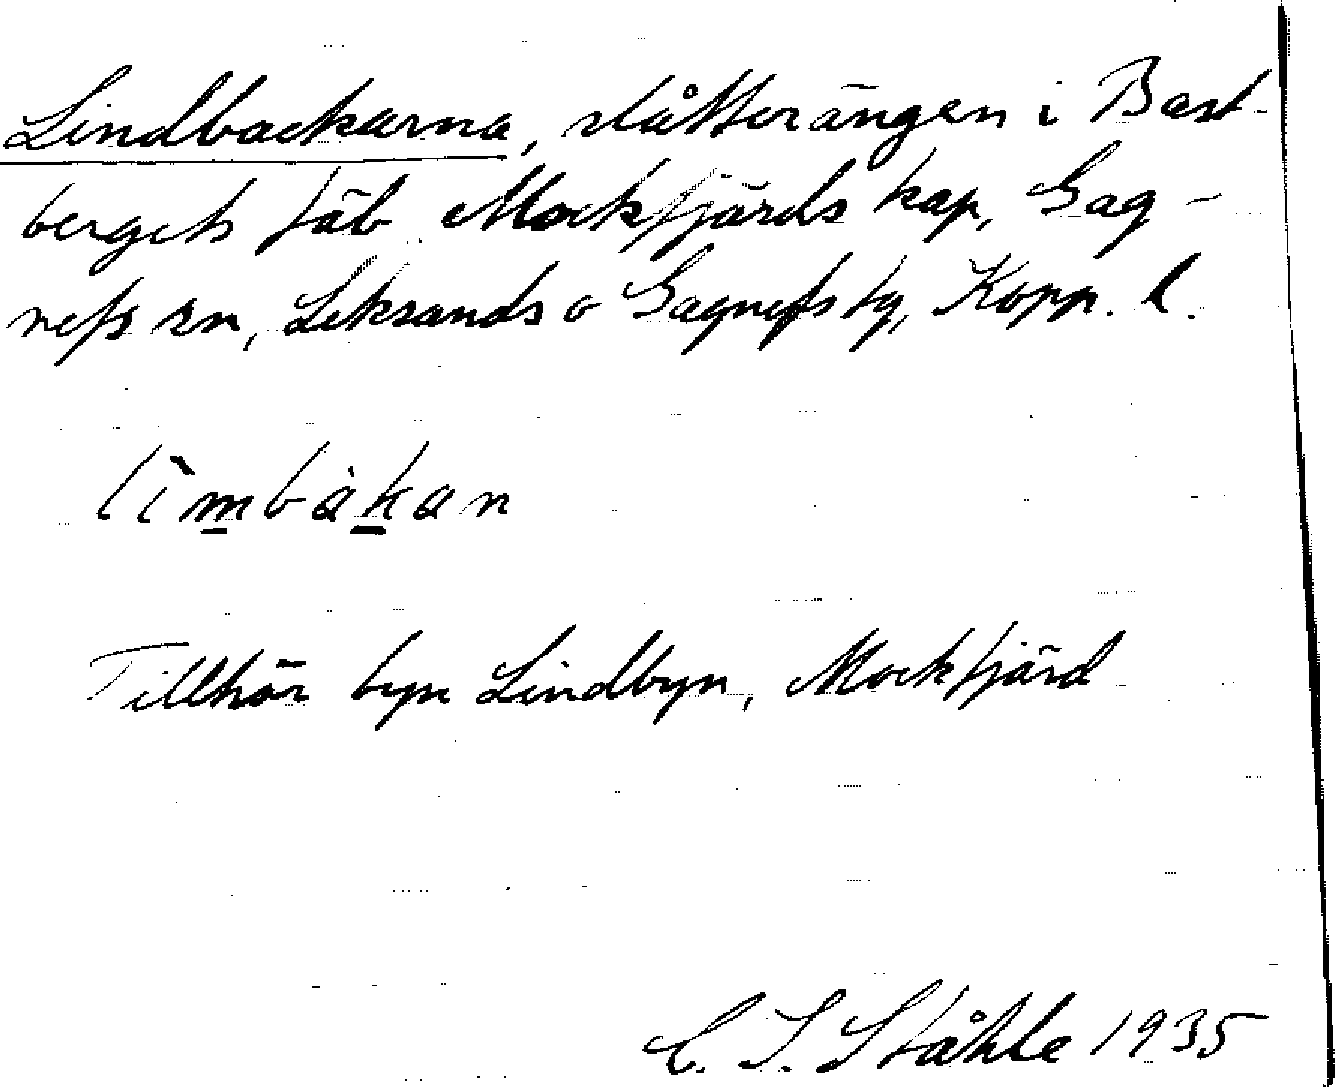 Lindbackarna, slåtterängen i Bast-
bergets fäb. Mockfjärds kap, Gag-
nefs sn, Leksands o Gagnefs tg, Kopp. l.
lìmbàkan
Tillhör byn Lindbyn, Mockfjärd
C. I. Ståhle 1935